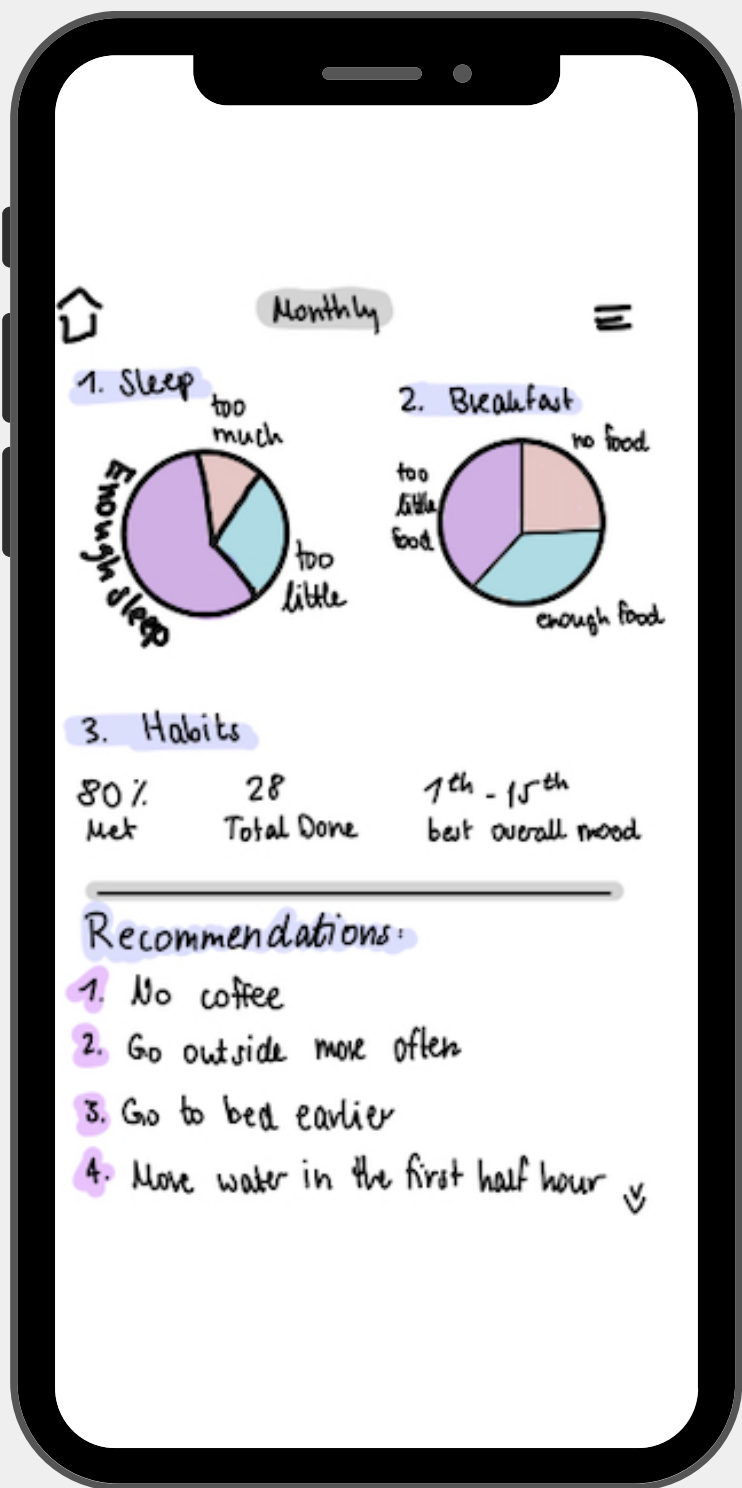 Monthly
1. Sleep
too
much
Enough sleep
too
little
2. Breakfast
no food
too
little
food
enough food
3. Habits
80%
Met
28
Total Done
1th - 15th
best overall mood
Recommendations:
1. No coffee
2. Go outside more often
3. Go to bed earlier
4. More water in the first half hour